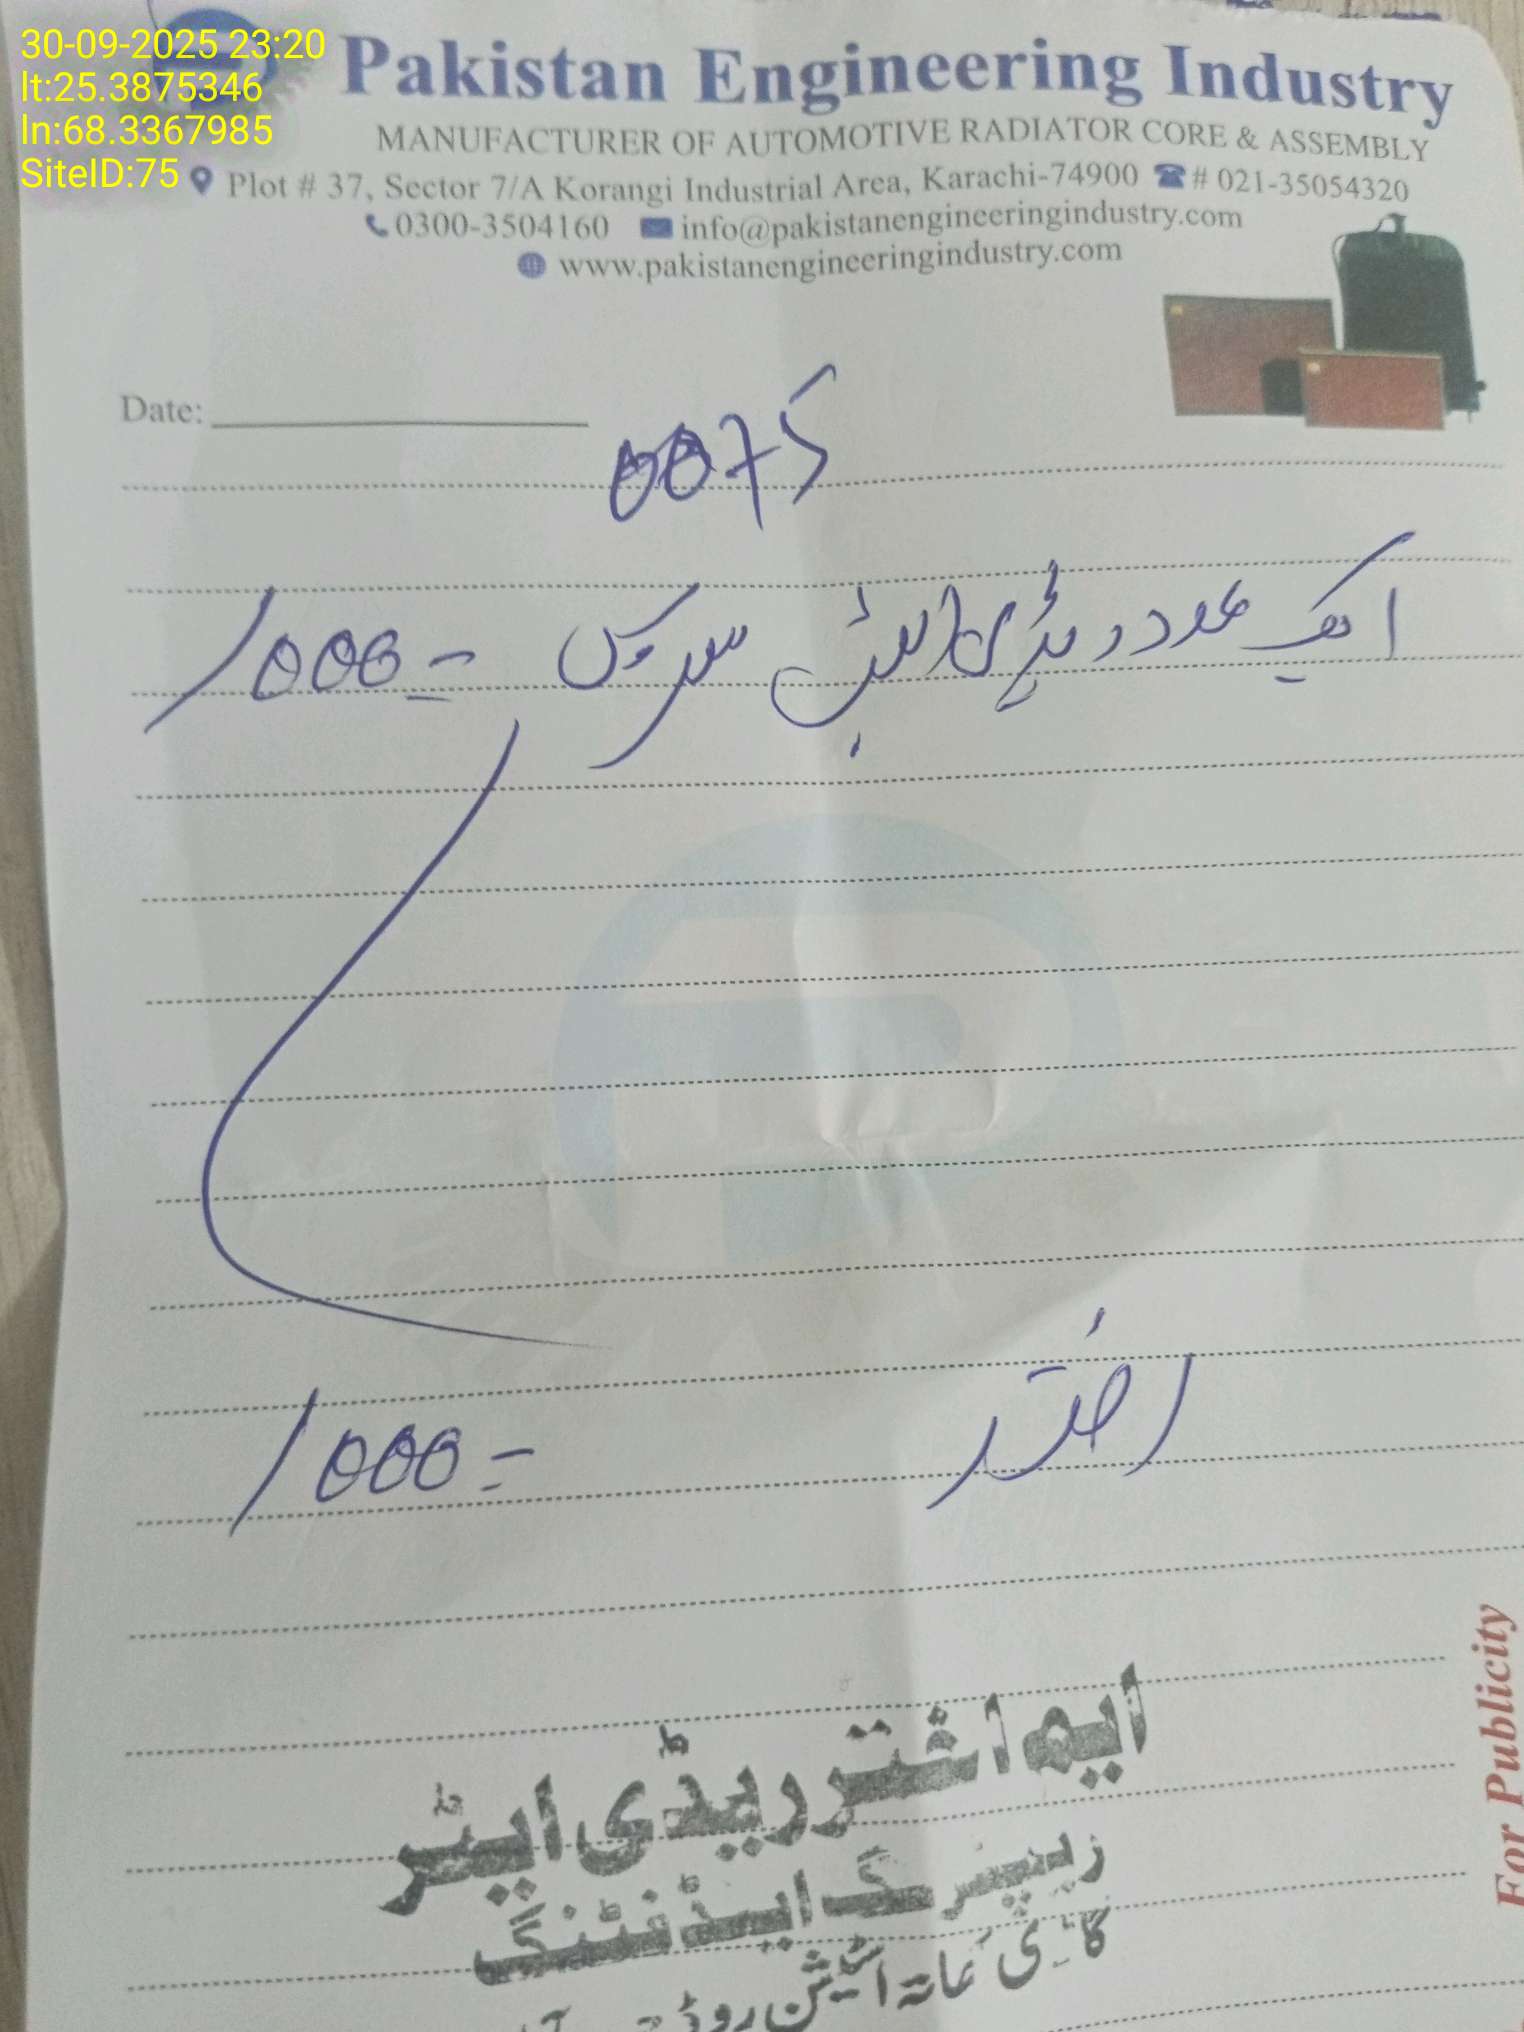 30-09-2025 23:20
lt:25.3875346
ln:68.3367985
SiteID:75
Pakistan Engineering Industry
MANUFACTURER OF AUTOMOTIVE RADIATOR CORE & ASSEMBLY
Plot # 37, Sector 7/A Korangi Industrial Area, Karachi-74900 # 021-35054320
0300-3504160 info@pakistanengineeringindustry.com
www.pakistanengineeringindustry.com
Date:
0075
ایک عدد ریڈی سروس 1000 =
اختر 1000 =
ایم اختر ریڈی ایٹر
رپیئرنگ اینڈ فٹنگ
گاڑی کھاتہ اسٹیشن روڈ
For Publicity